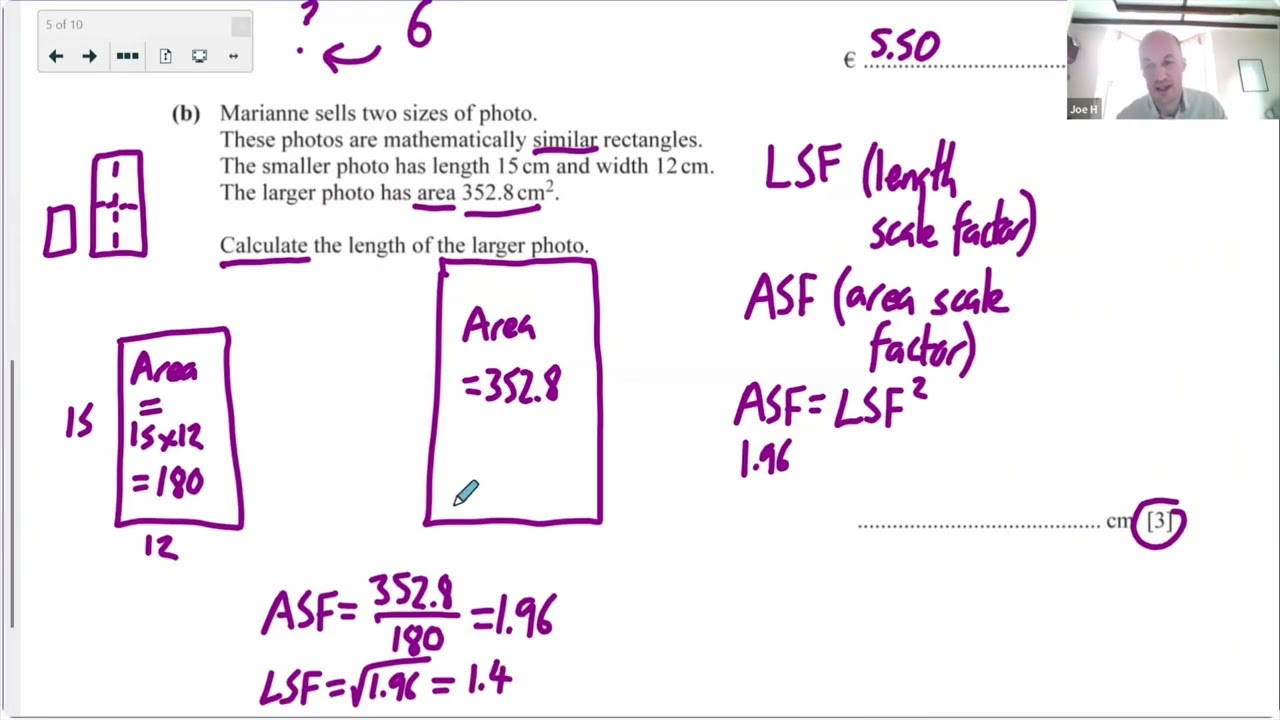 5 of 10
?
6
€ 5.50
Joe H
(b) Marianne sells two sizes of photo.
These photos are mathematically similar rectangles.
The smaller photo has length 15 cm and width 12 cm.
The larger photo has area 352.8 cm².
Calculate the length of the larger photo.
LSF (length
scale factor)
ASF (area scale
factor)
ASF = LSF²
1.96
Area
=
15x12
= 180
15
12
Area
= 352.8
cm [3]
ASF = 352.8/180 = 1.96
LSF = √1.96 = 1.4